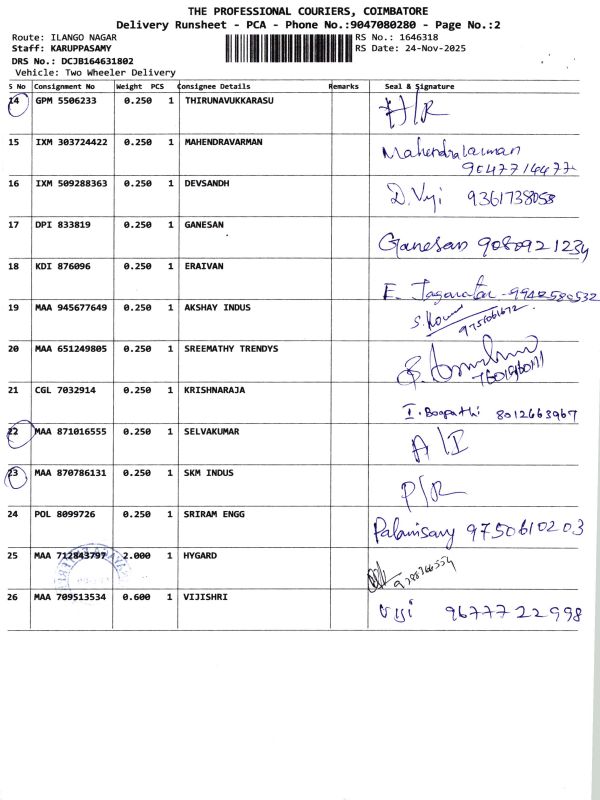 THE PROFESSIONAL COURIERS, COIMBATORE
Delivery Runsheet - PCA - Phone No.:9047080280 - Page No.:2
Route: ILANGO NAGAR RS No.: 1646318
Staff: KARUPPASAMY RS Date: 24-Nov-2025
DRS No.: DCJB164631802
Vehicle: Two Wheeler Delivery
S No Consignment No Weight PCS Consignee Details Remarks Seal & Signature
14 GPM 5506233 0.250 1 THIRUNAVUKKARASU H/R
15 IXM 303724422 0.250 1 MAHENDRAVARMAN Mahendralarman
9047714477
16 IXM 509288363 0.250 1 DEVSANDH D. Vyi 9361738058
17 DPI 833819 0.250 1 GANESAN Ganesan 9080921234
18 KDI 876096 0.250 1 ERAIVAN E. 9942580532
19 MAA 945677649 0.250 1 AKSHAY INDUS S.
20 MAA 651249805 0.250 1 SREEMATHY TRENDYS
21 CGL 7032914 0.250 1 KRISHNARAJA I. Boopathi 8012663967
22 MAA 871016555 0.250 1 SELVAKUMAR A/I
23 MAA 870786131 0.250 1 SKM INDUS P/R
24 POL 8099726 0.250 1 SRIRAM ENGG Palanisamy 9750610203
25 MAA 712843797 2.000 1 HYGARD
26 MAA 709513534 0.600 1 VIJISHRI Viji 9677722998